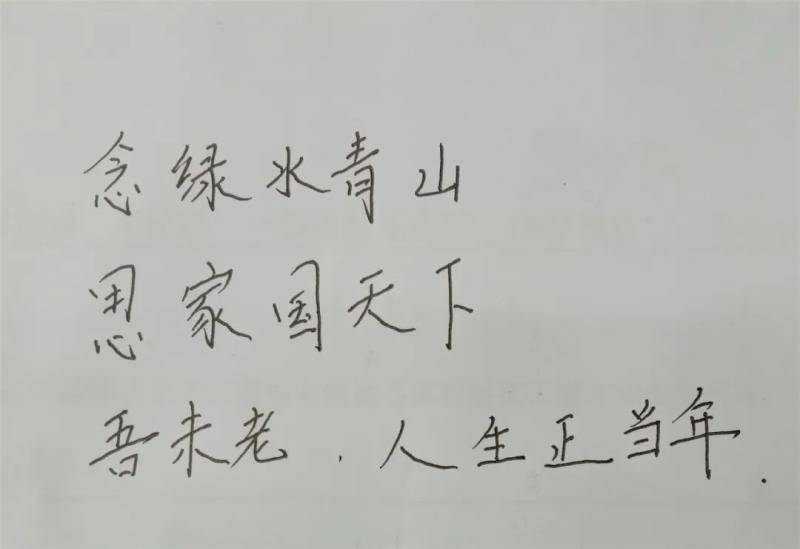 念绿水青山
思家国天下
吾未老．人生正当年．